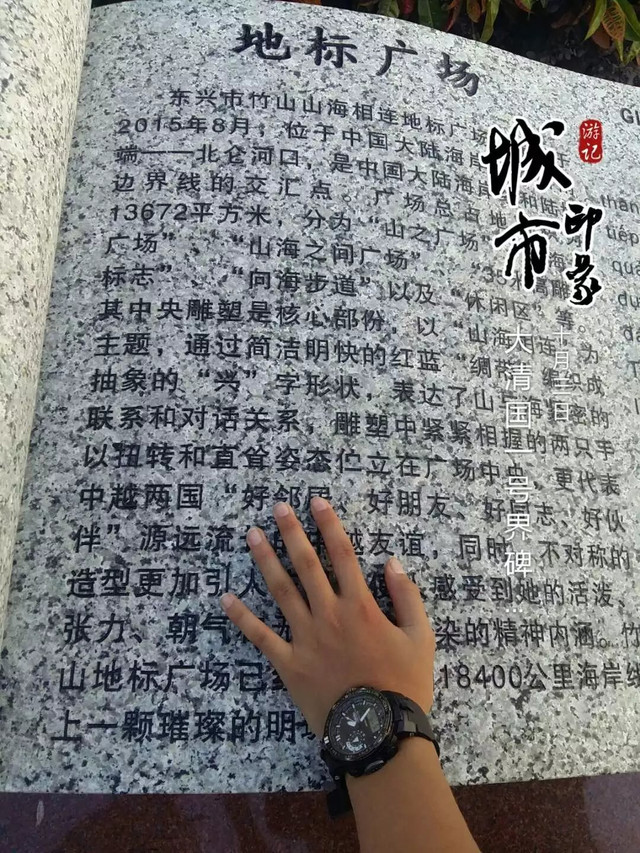 地标广场
东兴市竹山山海相连地标广场
2015年8月，位于中国大陆海岸
端——北仑河口，是中国大陆海岸 和陆
边界线的交汇点。广场总占地
13672平方米，分为“山之广场”、“海
广场”、“山海之间广场”、“35米高雕
标志”、“向海步道”以及“休闲区”等。
其中央雕塑是核心部份，以“山海 连”为
主题，通过简洁明快的红蓝“绸带”编织成
抽象的“兴”字形状，表达了山与海紧密的
联系和对话关系，雕塑中紧紧相握的两只手
以扭转和直耸姿态伫立在广场中央，更代表
中越两国“好邻居、好朋友、好同志、好伙
伴”源远流 的 越友谊，同时，不对称的
造型更加引人 使 感受到她的活泼、
张力、朝气 染的精神内涵。竹
山地标广场已 18400公里海岸线
上一颗璀璨的明
tiếp
城市
印象
游记
十月三日
大清国一号界碑...